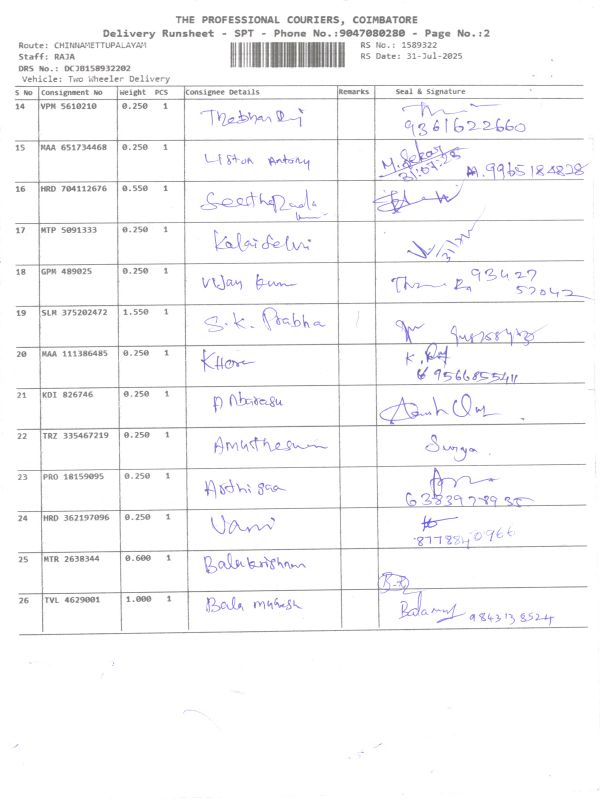 THE PROFESSIONAL COURIERS, COIMBATORE
Delivery Runsheet - SPT - Phone No.:9047080280 - Page No.:2
Route: CHINNAMETTUPALAYAM RS No.: 1589322
Staff: RAJA RS Date: 31-Jul-2025
DRS No.: DCJB158932202
Vehicle: Two Wheeler Delivery
S No Consignment No Weight PCS Consignee Details Remarks Seal & Signature
14 VPM 5610210 0.250 1
9361622660
15 MAA 651734468 0.250 1 Liston Antony M. Sekar
31.07.25 M.9965184828
16 HRD 704112676 0.550 1
17 MTP 5091333 0.250 1 Kalaiselvi
18 GPM 489025 0.250 1 Vijay 93427
57042
19 SLM 375202472 1.550 1 S.K. Prabha
20 MAA 111386485 0.250 1 K.
9566855411
21 KDI 826746 0.250 1
22 TRZ 335467219 0.250 1 Surya
23 PRO 18159095 0.250 1
24 HRD 362197096 0.250 1 Vani
8778840966
25 MTR 2638344 0.600 1 Balakrishnan
26 TVL 4629001 1.000 1 Bala 9843138524